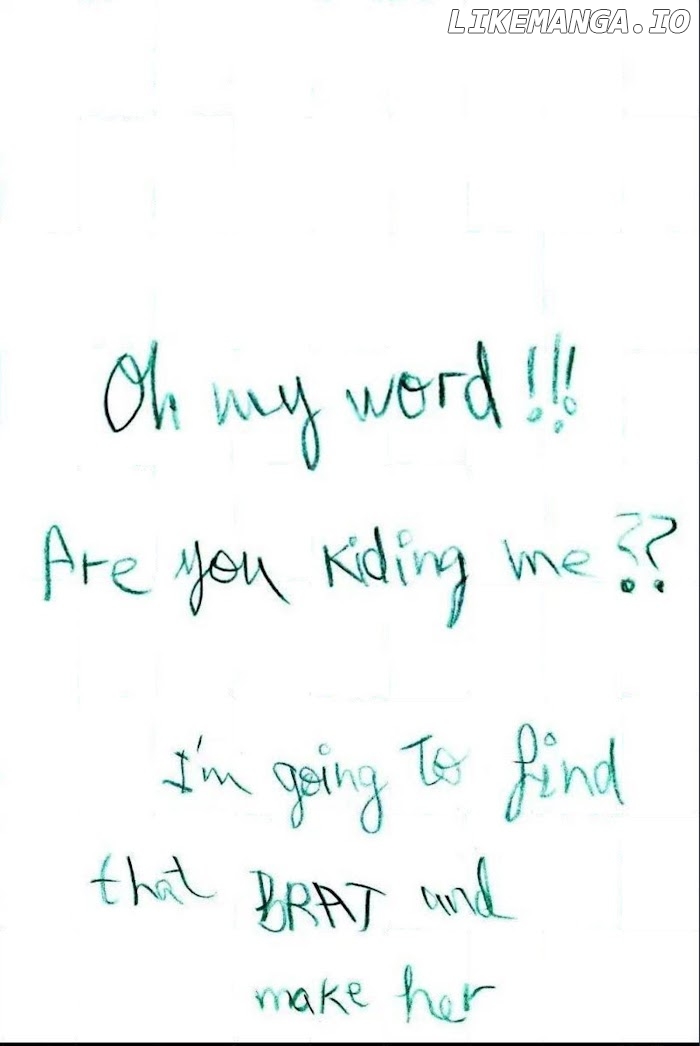 LIKEMANGA.IO
Oh my word!!!
Are you kiding me??
I'm going to find
that BRAT and
make her